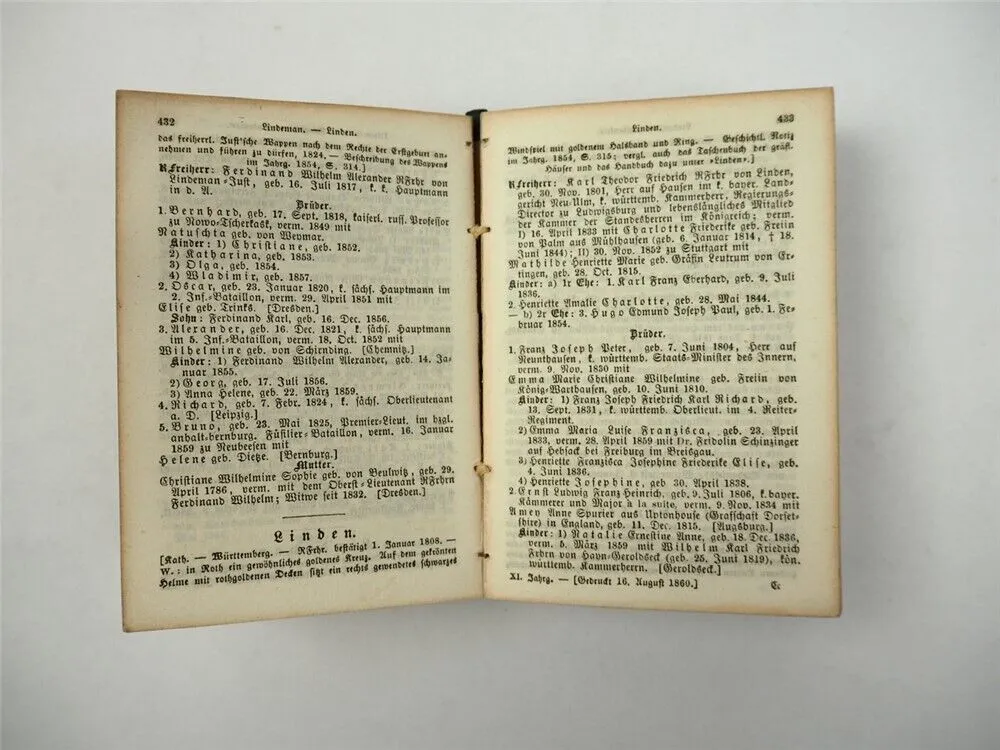 432
Lindeman. — Linden.
das freiherrl. Just'sche Wappen nach dem Rechte der Erstgeburt an-
nehmen und führen zu dürfen, 1824. — Beschreibung des Wappens
im Jahrg. 1854, S. 314.]
RFreiherr: Ferdinand Wilhelm Alexander RFrhr von
Lindeman-Just, geb. 16. Juli 1817, k. k. Hauptmann
in d. A.
Brüder.
1. Bernhard, geb. 17. Sept. 1818, kaiserl. russ. Professor
zu Nowo-Tscherkask, verm. 1849 mit
Natuschta geb. von Weymar.
Kinder: 1) Christiane, geb. 1852.
2) Katharina, geb. 1853.
3) Olga, geb. 1854.
4) Wladimir, geb. 1857.
2. Oscar, geb. 23. Januar 1820, k. sächs. Hauptmann im
2. Inf.-Bataillon, verm. 29. April 1851 mit
Elise geb. Trinks. [Dresden.]
Sohn: Ferdinand Karl, geb. 16. Dec. 1856.
3. Alexander, geb. 16. Dec. 1821, k. sächs. Hauptmann
im 5. Inf.-Bataillon, verm. 18. Oct. 1852 mit
Wilhelmine geb. von Schirnding. [Chemnitz.]
Kinder: 1) Ferdinand Wilhelm Alexander, geb. 14. Ja-
nuar 1855.
2) Georg, geb. 17. Juli 1856.
3) Anna Helene, geb. 22. März 1859.
4. Richard, geb. 7. Febr. 1824, k. sächs. Oberlieutenant
a. D. [Leipzig.]
5. Bruno, geb. 23. Mai 1825, Premier-Lieut. im hzgl.
anhalt-bernburg. Füsilier-Bataillon, verm. 16. Januar
1859 zu Neubeesen mit
Helene geb. Dietze. [Bernburg.]
Mutter.
Christiane Wilhelmine Sophie geb. von Beulwitz, geb. 29.
April 1786, verm. mit dem Oberst-Lieutenant RFrhrn
Ferdinand Wilhelm; Witwe seit 1832. [Dresden.]
Linden.
[Kath. — Württemberg. — RFrhr. bestätigt 1. Januar 1808. —
W.: in Roth ein gewöhnliches goldenes Kreuz. Auf dem gekrönten
Helme mit rothgoldenen Decken sitzt ein rechts gewendetes schwarzes
433
Linden.
Windspiel mit goldenem Halsband und Ring. — Geschichtl. Notiz
im Jahrg. 1854, S. 315; vergl. auch das Taschenbuch der gräfl.
Häuser und das Handbuch dazu unter »Linden«.]
RFreiherr: Karl Theodor Friedrich RFrhr von Linden,
geb. 30. Nov. 1801, Herr auf Hausen im k. bayer. Land-
gericht Neu-Ulm, k. württemb. Kammerherr, Regierungs-
Director zu Ludwigsburg und lebenslängliches Mitglied
der Kammer der Standesherren im Königreich; verm.
I) 16. April 1833 mit Charlotte Friederike geb. Freiin
von Palm aus Mühlhausen (geb. 6. Januar 1814, † 18.
Juni 1844); II) 30. Nov. 1852 zu Stuttgart mit
Mathilde Henriette Marie geb. Gräfin Leutrum von Er-
tingen, geb. 28. Oct. 1815.
Kinder: a) 1r Ehe: 1. Karl Franz Eberhard, geb. 9. Juli
1836.
2. Henriette Amalie Charlotte, geb. 28. Mai 1844.
— b) 2r Ehe: 3. Hugo Edmund Joseph Paul, geb. 1. Fe-
bruar 1854.
Brüder.
1. Franz Joseph Peter, geb. 7. Juni 1804, Herr auf
Neunthausen, k. württemb. Staats-Minister des Innern,
verm. 9. Nov. 1830 mit
Emma Marie Christiane Wilhelmine geb. Freiin von
König-Warthausen, geb. 10. Juni 1810.
Kinder: 1) Franz Joseph Friedrich Karl Richard, geb.
13. Sept. 1831, k. württemb. Oberlieut. im 4. Reiter-
Regiment.
2) Emma Maria Luise Franzisca, geb. 23. April
1833, verm. 28. April 1859 mit Dr. Fridolin Schinzinger
auf Hebsack bei Freiburg im Breisgau.
3) Henriette Franzisca Josephine Friederike Elise, geb.
4. Juni 1836.
4) Henriette Josephine, geb 30. April 1838.
2. Ernst Ludwig Franz Heinrich, geb. 9. Juli 1806, k. bayer.
Kämmerer und Major à la suite, verm. 9. Nov. 1834 mit
Amey Anne Spurier aus Uptonhouse (Grafschaft Dorset-
shire) in England, geb. 11. Dec. 1815. [Augsburg.]
Kinder: 1) Natalie Ernestine Anne, geb. 18. Dec. 1836,
verm. 5. März 1859 mit Wilhelm Karl Friedrich
Frhrn von Hayn-Geroldseck (geb. 25. Juni 1819), kön.
württemb. Kammerherrn. [Geroldseck.]
XI. Jahrg. — [Gedruckt 16. August 1860.]
Cc